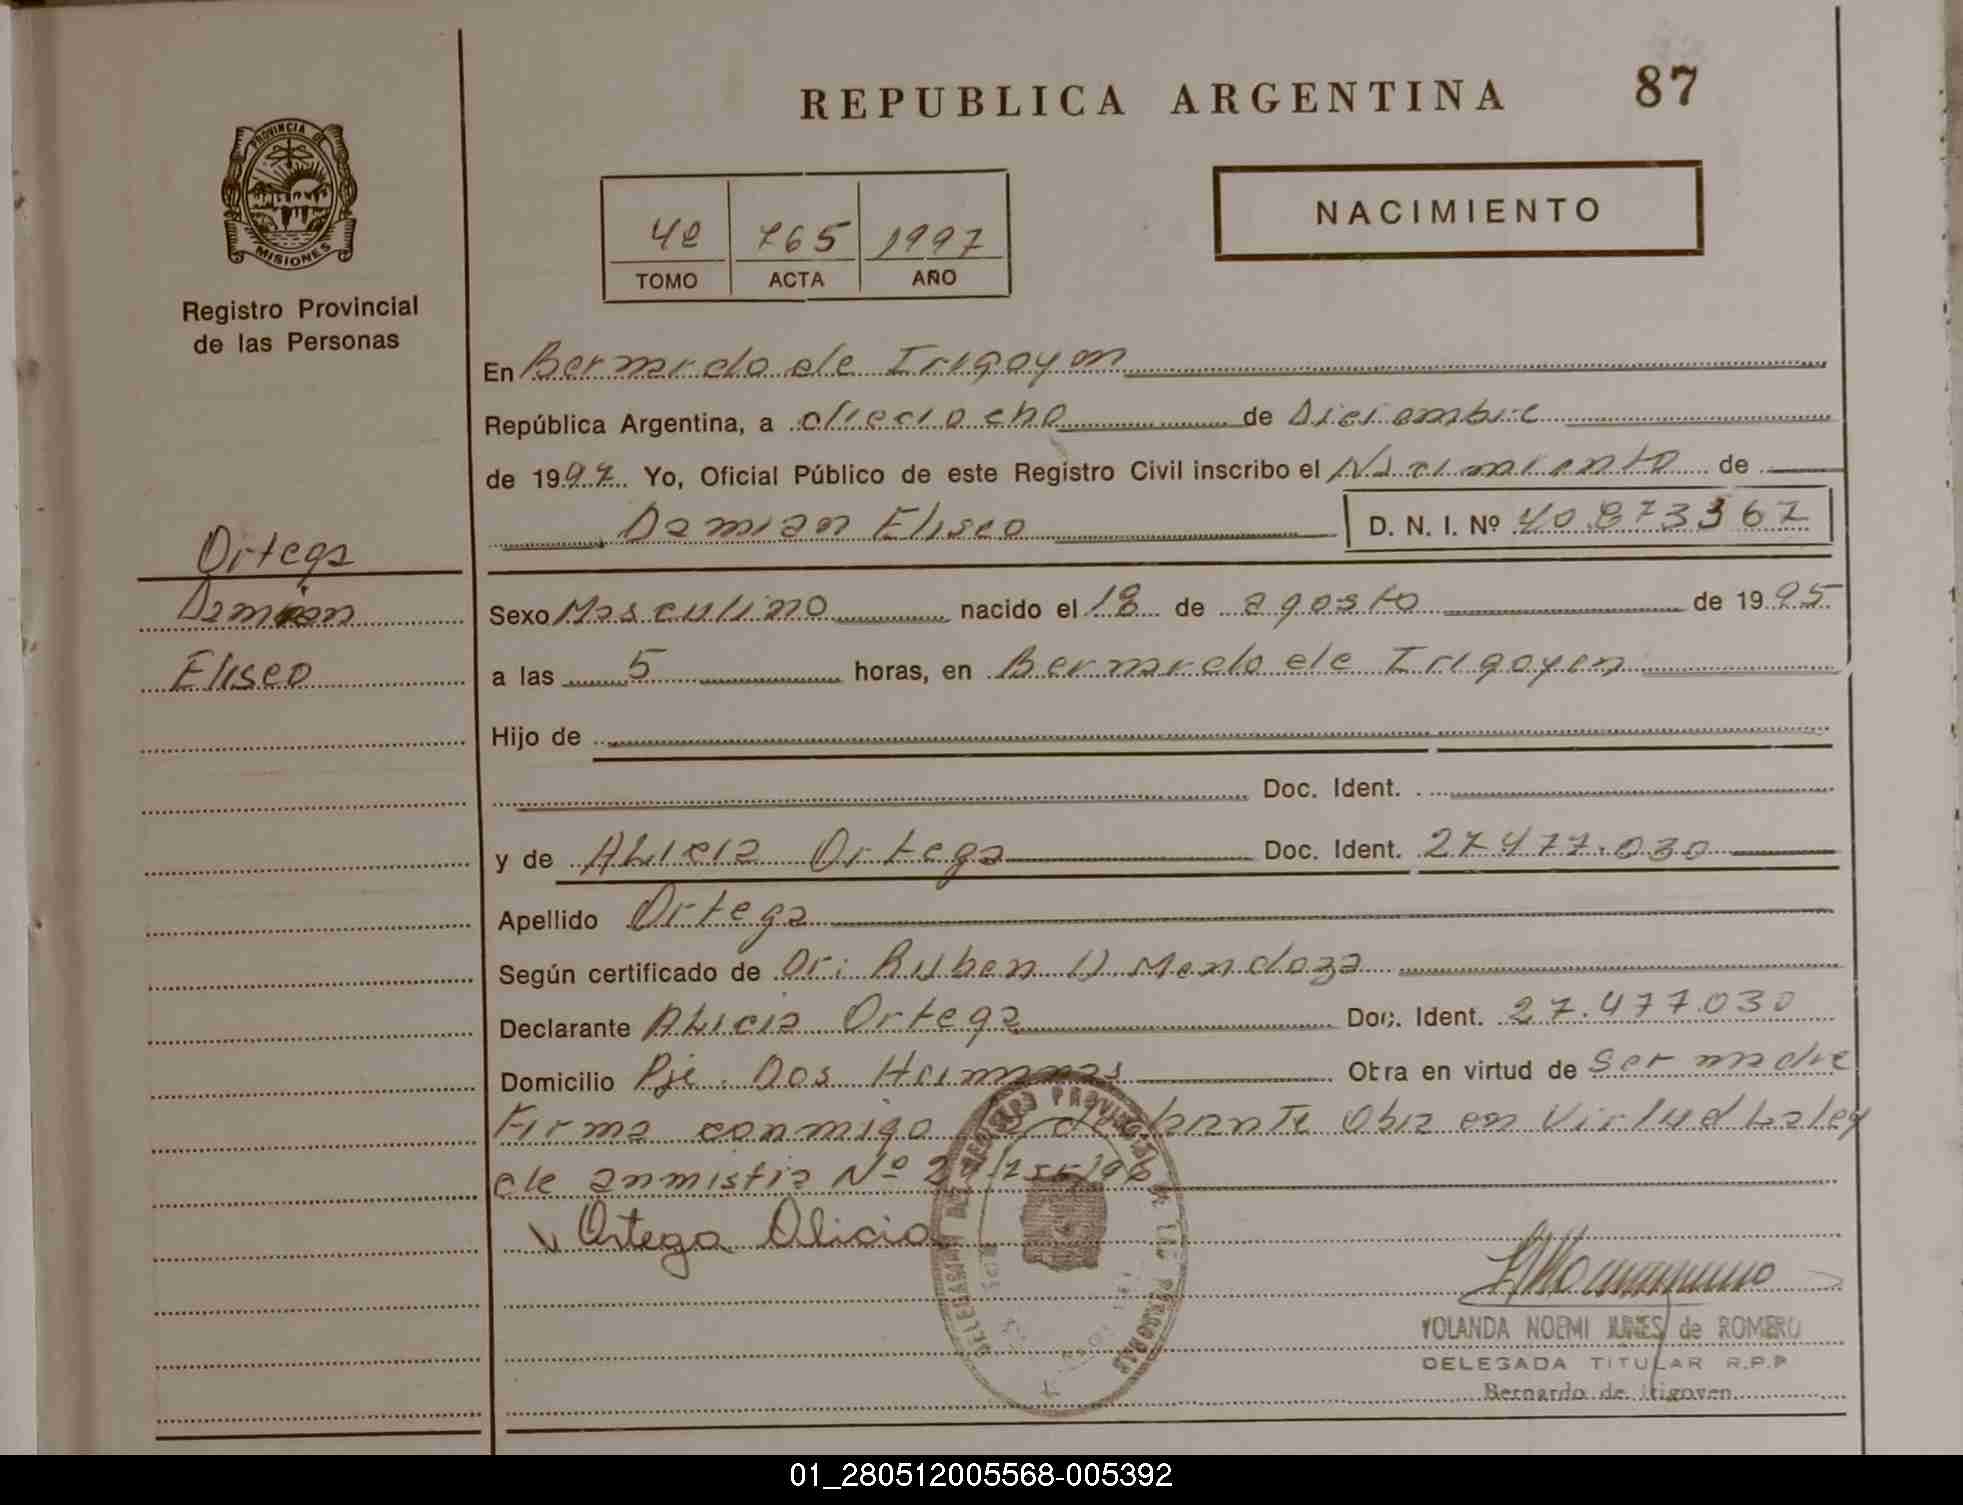 REPUBLICA ARGENTINA 87
PROVINCIA DE
MISIONES
Registro Provincial
de las Personas
4º 765 1997
TOMO ACTA AÑO
NACIMIENTO
En Bernardo de Irigoyen
República Argentina, a dieciocho de Diciembre
de 1997. Yo, Oficial Público de este Registro Civil inscribo el Nacimiento de
Damian Eliseo D. N. I. Nº 40.873367
Ortega
Damian
Eliseo
Sexo Masculino nacido el 18 de agosto de 1995
a las 5 horas, en Bernardo de Irigoyen
Hijo de
Doc. Ident.
y de Alicia Ortega Doc. Ident. 27.477.030
Apellido Ortega
Según certificado de Dr: Ruben D Mendoza
Declarante Alicia Ortega Doc. Ident. 27.477.030
Domicilio Pje. Dos Hermanas Obra en virtud de Ser madre
Firma conmigo la declarante Obra en Virtud La ley
de anmistia Nº
Ortega Alicia
DELEGACION DEL REGISTRO PROVINCIAL DE LAS PERSONAS
YOLANDA NOEMI JUNES de ROMERO
DELEGADA TITULAR R.P.P
Bernardo de Irigoyen
01_280512005568-005392